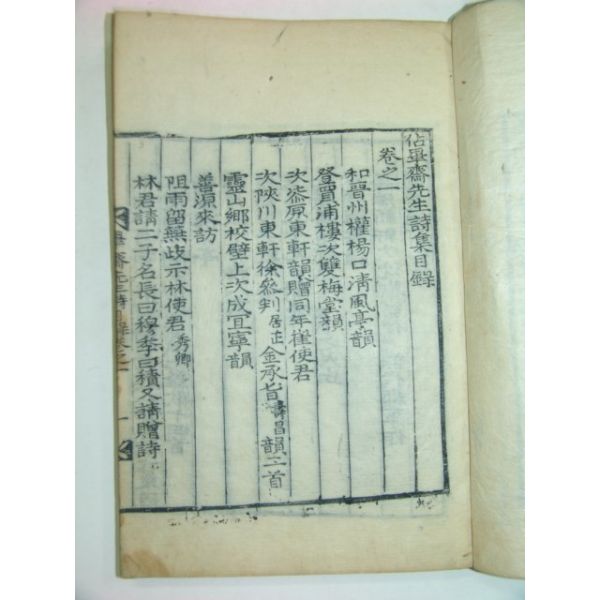 佔畢齋先生詩集目錄
卷之一
和晉州權楊口淸風亭韻
登買浦樓次雙梅堂韻
次漆原東軒韻贈同年崔使君
次陜川東軒徐叅判居正金承旨壽昌韻二首
靈山鄕校壁上次成宜寧韻
善源來訪
阻雨留無歧示林使君秀卿
林君請二子名長曰穆季曰積又請贈詩